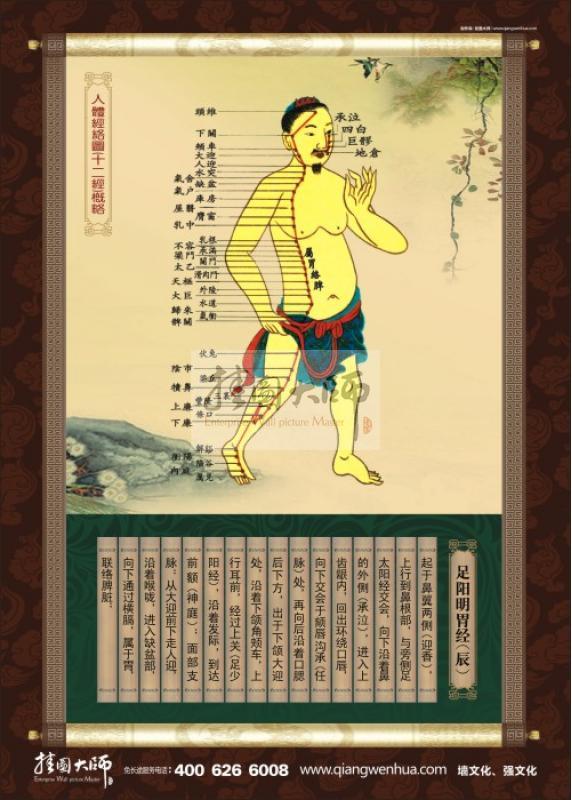 挂图大师 | www.qiangwenhua.com
人體經絡圖(十二經)概略
頭維
下關
頰車
大迎
人迎
水突
缺盆
氣舍
氣戶
庫房
屋翳
膺窗
乳中
乳根
不容
承滿
梁門
關門
太乙
滑肉門
天樞
外陵
大巨
水道
歸來
氣衝
髀關
伏兔
陰市
梁丘
犢鼻
上廉
下廉
豐隆
條口
解谿
衝陽
陷谷
內庭
厲兌
承泣
四白
巨髎
地倉
屬胃絡脾
挂圖大師
Enterprise Wall picture Master
足阳明胃经(辰)
起于鼻翼两侧(迎香),
上行到鼻根部,与旁侧足
太阳经交会,向下沿着鼻
的外侧(承泣),进入上
齿龈内,回出环绕口唇,
向下交会于颏唇沟承(任
脉)处,再向后沿着口腮
后下方,出于下颌大迎
处,沿着下颌角颊车,上
行耳前,经过上关(足少
阳经),沿着发际,到达
前额(神庭);面部支
脉:从大迎前下走人迎,
沿着喉咙,进入缺盆部,
向下通过横膈,属于胃,
联络脾脏。
挂圖大師
Enterprise Wall picture Master
免长途服务电话:400 626 6008 www.qiangwenhua.com 墙文化、强文化